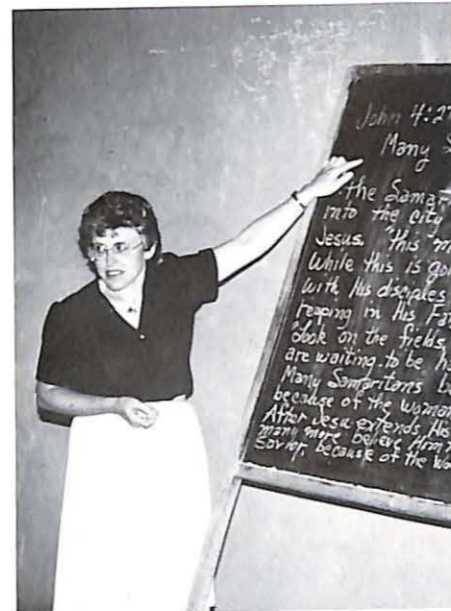 John 4:27
Many S
the Samari
into the city
Jesus. "this m
While this is goi
with His disciples
reaping in His Fa
"Look on the fields,
are waiting to be ha
Many Samaritans be
because of the woman
After Jesus extends His
many more believe Him
Savior, because of the Wo